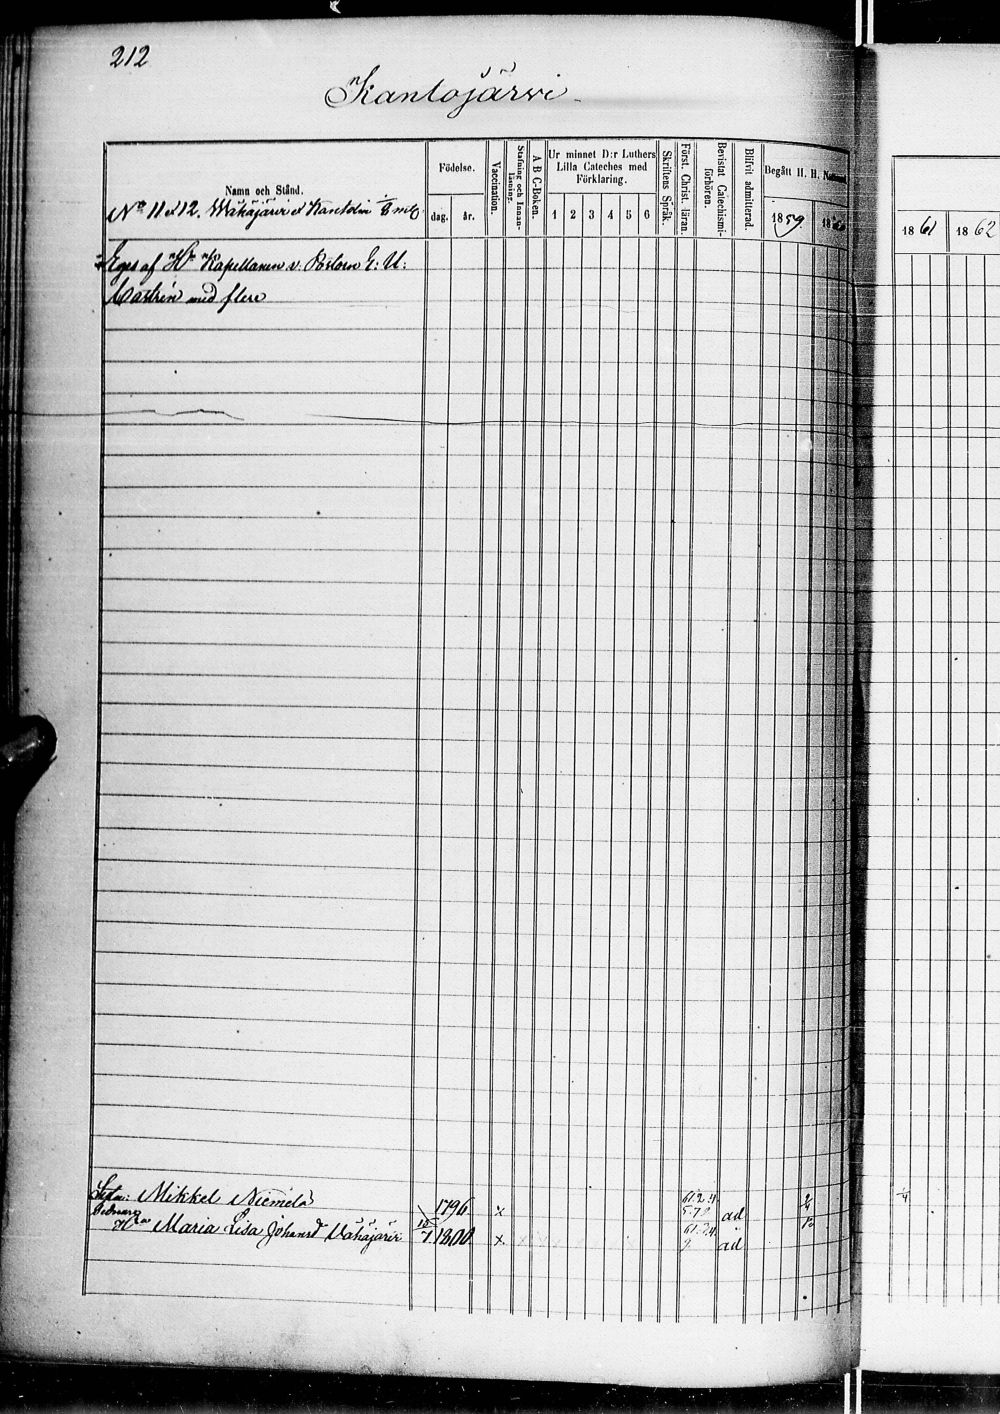 212
Kantojärvi
Namn och Stånd.
Födelse.
dag. år.
Vaccination.
Stafning och Innan-läsning.
A B C-Boken.
Ur minnet D:r Luthers
Lilla Cateches med
Förklaring.
1 2 3 4 5 6
Skriftens Språk.
Först. Christ. läran.
Bevistat Catechismi-förhören.
Blifvit admitterad.
Begått H. H.
1859
18
1861 1862
No 11 et 12, Wähäjärvi et Kantola
Eges af Hr Kapellanen v. Pastorn E: U:
Castrén med flere
Mikkel Niemelä 1796 x ad
Maria Lisa Johansd Vähäjärvi 1800 x ad